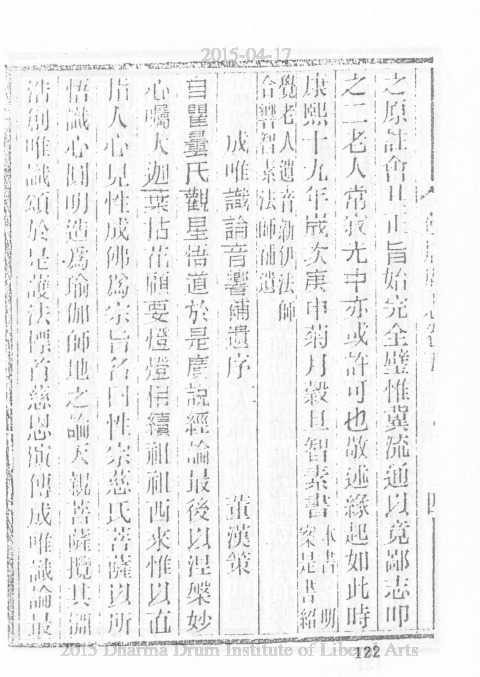 2015-04-17
之原註會其正旨始完全璧惟冀流通以竟鄙志叩
之二老人常寂光中亦或許可也敬述緣起如此時
康熙十九年歲次庚申菊月穀旦智素書
本書 明
案是書紹
覺老人遺音新伊法師
合響智素法師補遺
成唯識論音響補遺序二
董漢策
自瞿曇氏觀星悟道於是廣說經論最後以涅槃妙
心囑大迦葉拈花願要燈燈相續祖祖西來惟以直
指人心見性成佛為宗旨名曰性宗慈氏菩薩以所
悟識心圓明造為瑜伽師地之論天親菩薩攬其淵
浩創唯識頌於是護法標首慈恩演傳成唯識論最
四
122
2015 Dharma Drum Institute of Liberal Arts